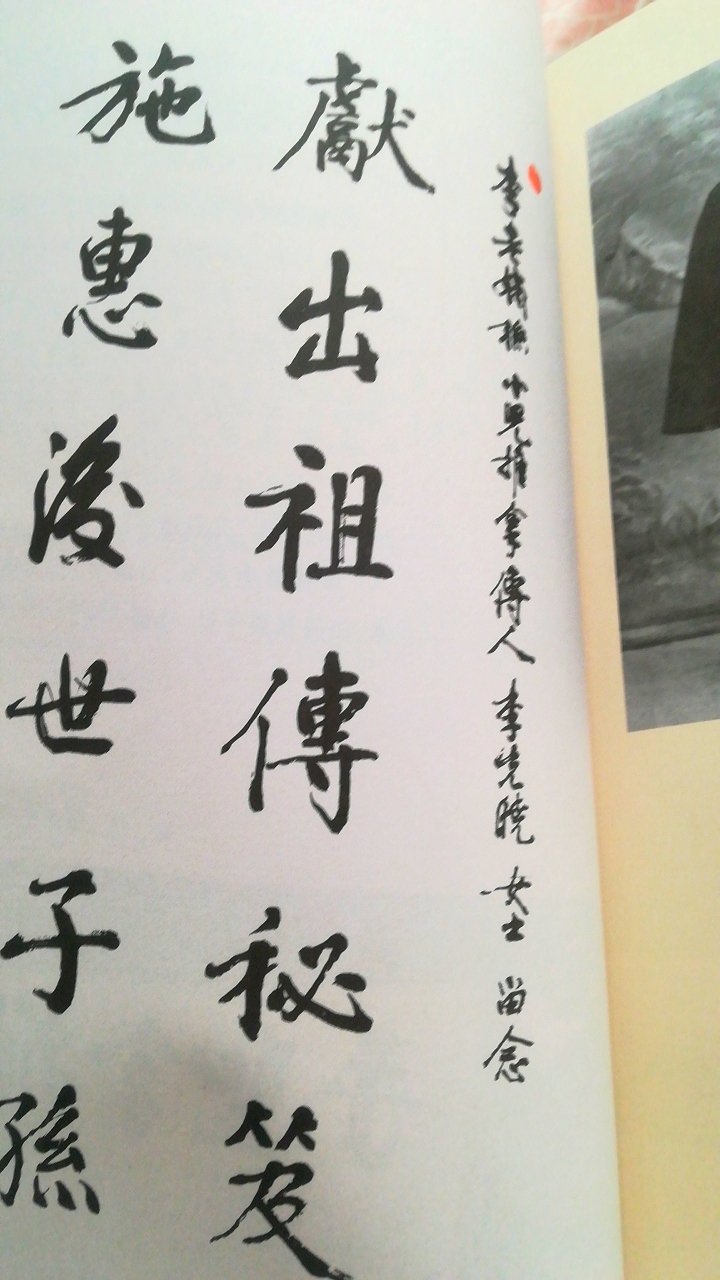 李氏精擦小兒推拿傳人李先曉女士留念
獻出祖傳秘笈
施惠後世子孫